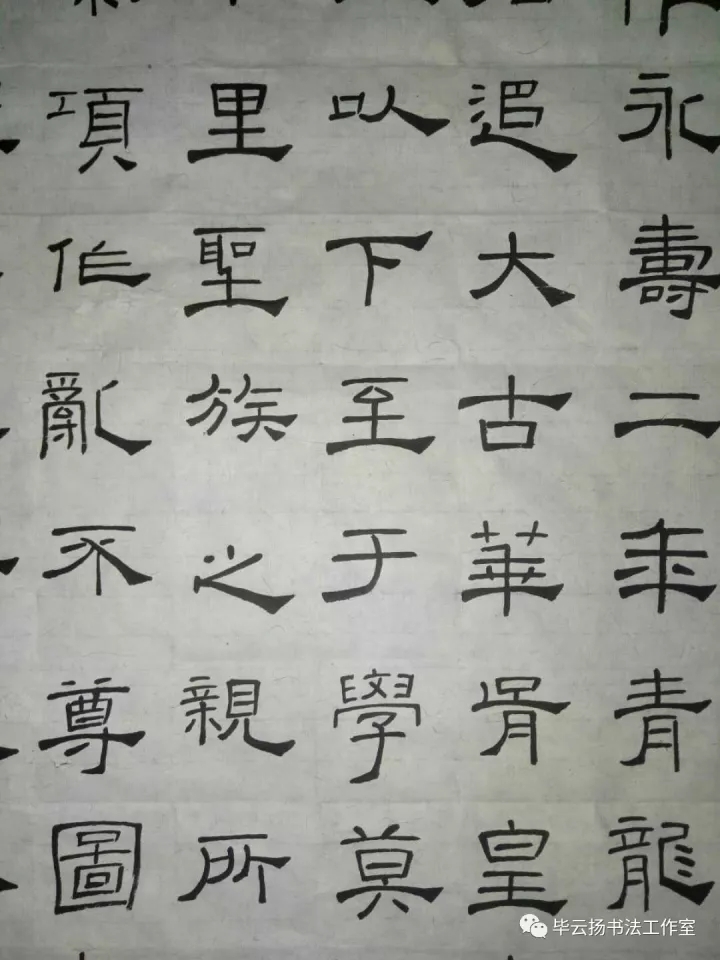 永壽二年青龍
追大古華胥皇
以下至于學莫
里聖族之親所
項作亂不尊圖
毕云扬书法工作室